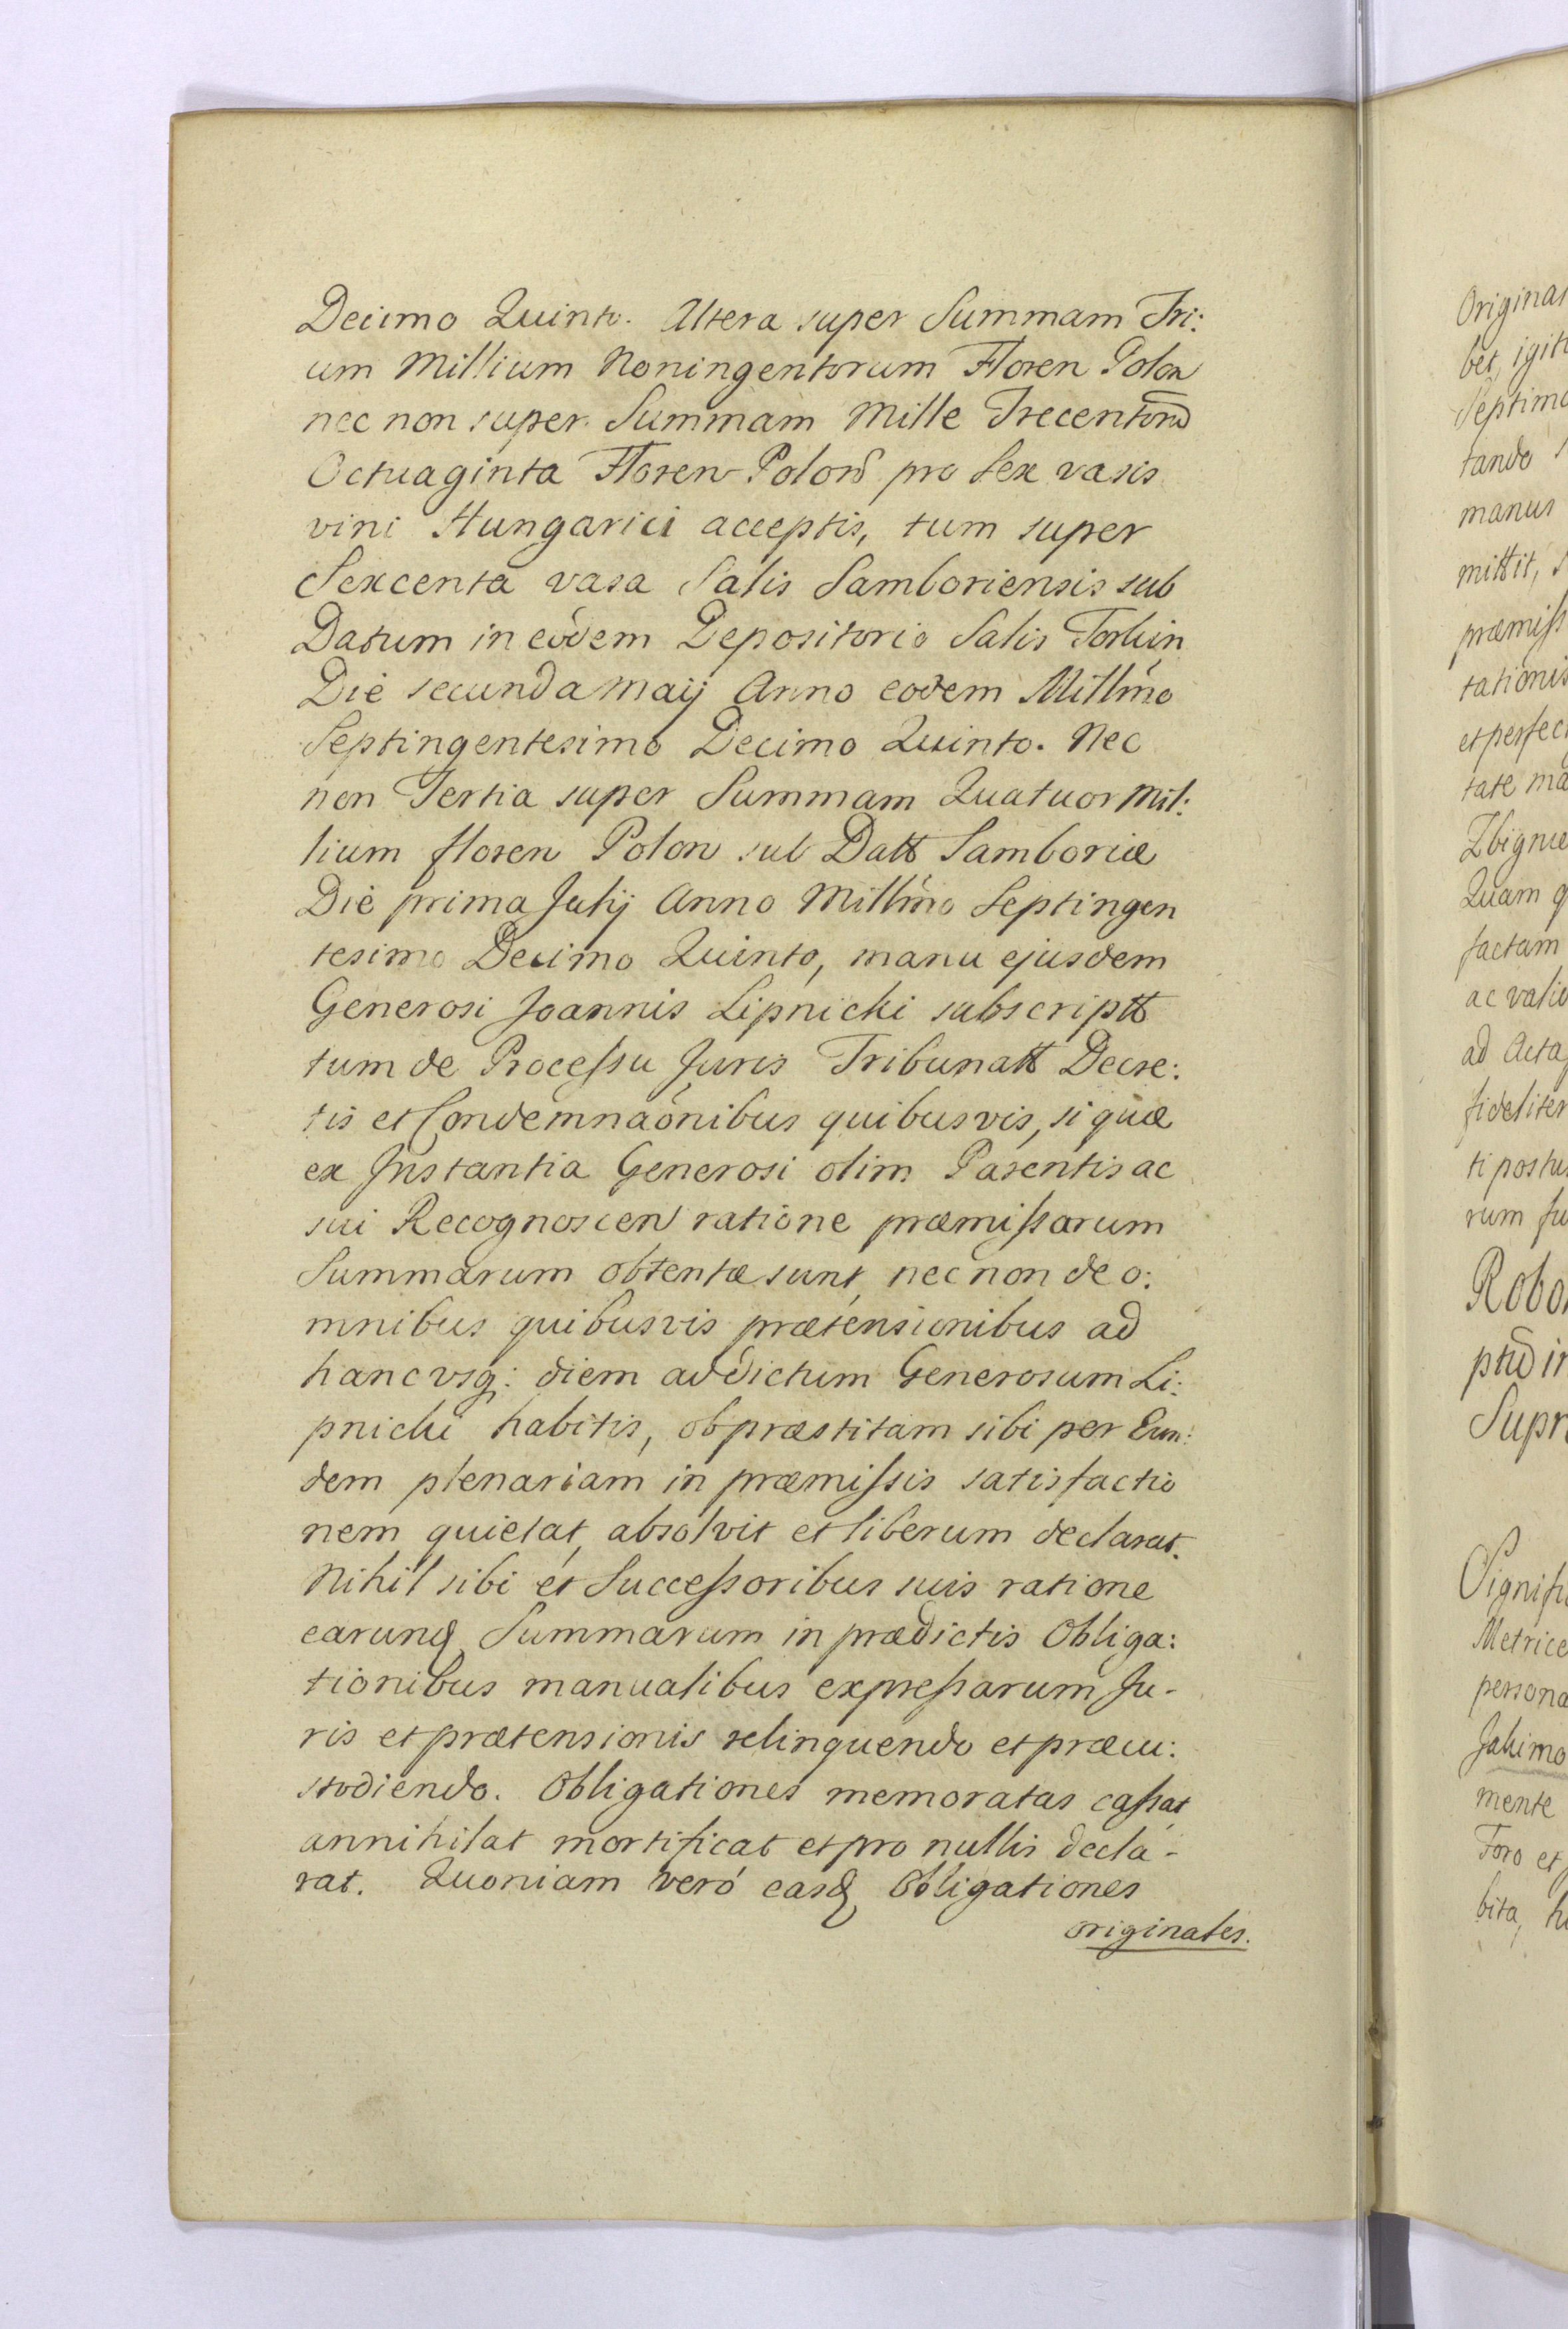 Decimo Quinto. Altera super Summam Tri:
um Millium Noningentorum Floren Polon
nec non super Summam Mille Trecentorũ
Octuaginta Floren Polorũ pro Sex vasis
vini Hungarici acceptis, tum super
Sexcenta vasa Salis Samboriensis sub
Datum in eodem Depositorio Salis
Die secunda Maij Anno eodem Millm̃o
Septingentesimo Decimo Quinto. Nec
non Tertia super Summam Quatuor Mil:
lium floren Polon sub Datt Samboriæ
Die prima Julij Anno Millm̃o Septingen
tesimo Decimo Quinto, manu ejusdem
Generosi Joannis Lipnicki subscriptt
tum de Processu Juris Tribunatt Decre:
tis et Condemnaõnibus quibusvis, si quæ
ex Instantia Generosi olim Parentis ac
sui Recognoscen ratione præmissarum
Summarum obtentæ sunt, nec non de o:
mnibus quibusvis prætensionibus ad
hanc vsq: diem ad dictum Generosum Li:
pnicki habitis, ob præstitam sibi per Eun:
dem plenariam in præmissis satisfactio
nem quietat, absolvit et liberum declarat.
Nihil sibi et Successoribus suis ratione
earunđ Summarum in prædictis Obliga:
tionibus manualibus expressarum Ju-
ris et prætensionis relinquendo et præcu:
stodiendo. Obligationes memoratas cassat
annihilat mortificat et pro nullis decla-
rat. Quoniam verò easđ Obligationes
originales.
Originas
bet, igitu
Septimo
tando
manus
mittit,
præmiss
tationis
et perfec
tate
Zbignie
Quam q
factam
ac valid
ad Acta
fideliter
ti postu
rum
Robo
ptũ in
Supr
Metrice
persona
Jakimo
mente
Foro et
bita,